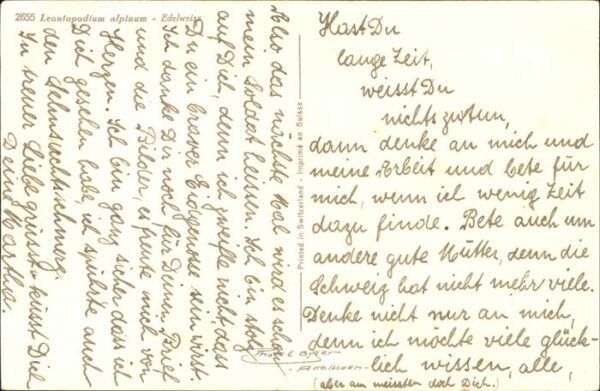 2655 Leontopodium alpinum - Edelweiss
Hast Du
lange Zeit,
weisst Du
nichts zutun,
dann denke an mich und
meine Arbeit und bete für
mich, wenn ich wenig Zeit
dazu finde. Bete auch um
andere gute Mütter, denn die
Schweiz hat nicht mehr viele.
Denke nicht nur an mich,
denn ich möchte viele glück-
lich wissen, alle,
(aber am meissten doch Dich.)
Also das nächste Mal wird es schon
mein Soldat heissen. Ich bin stolz
auf Dich, denn ich zweifle nicht dass
Du ein braver Eidgenosse sein wirst.
Ich danke Dir noch für Deinen Brief
und die Bilder, es freute mich von
Herzen. Ich bin ganz sicher dass ich
Dich gesehen habe, ich spührte auch
den Sehnsuchtsschmerz.
In treuer Liebe grüsst + küsst Dich
Deine Martha.
Printed in Switzerland - Imprimé en Suisse